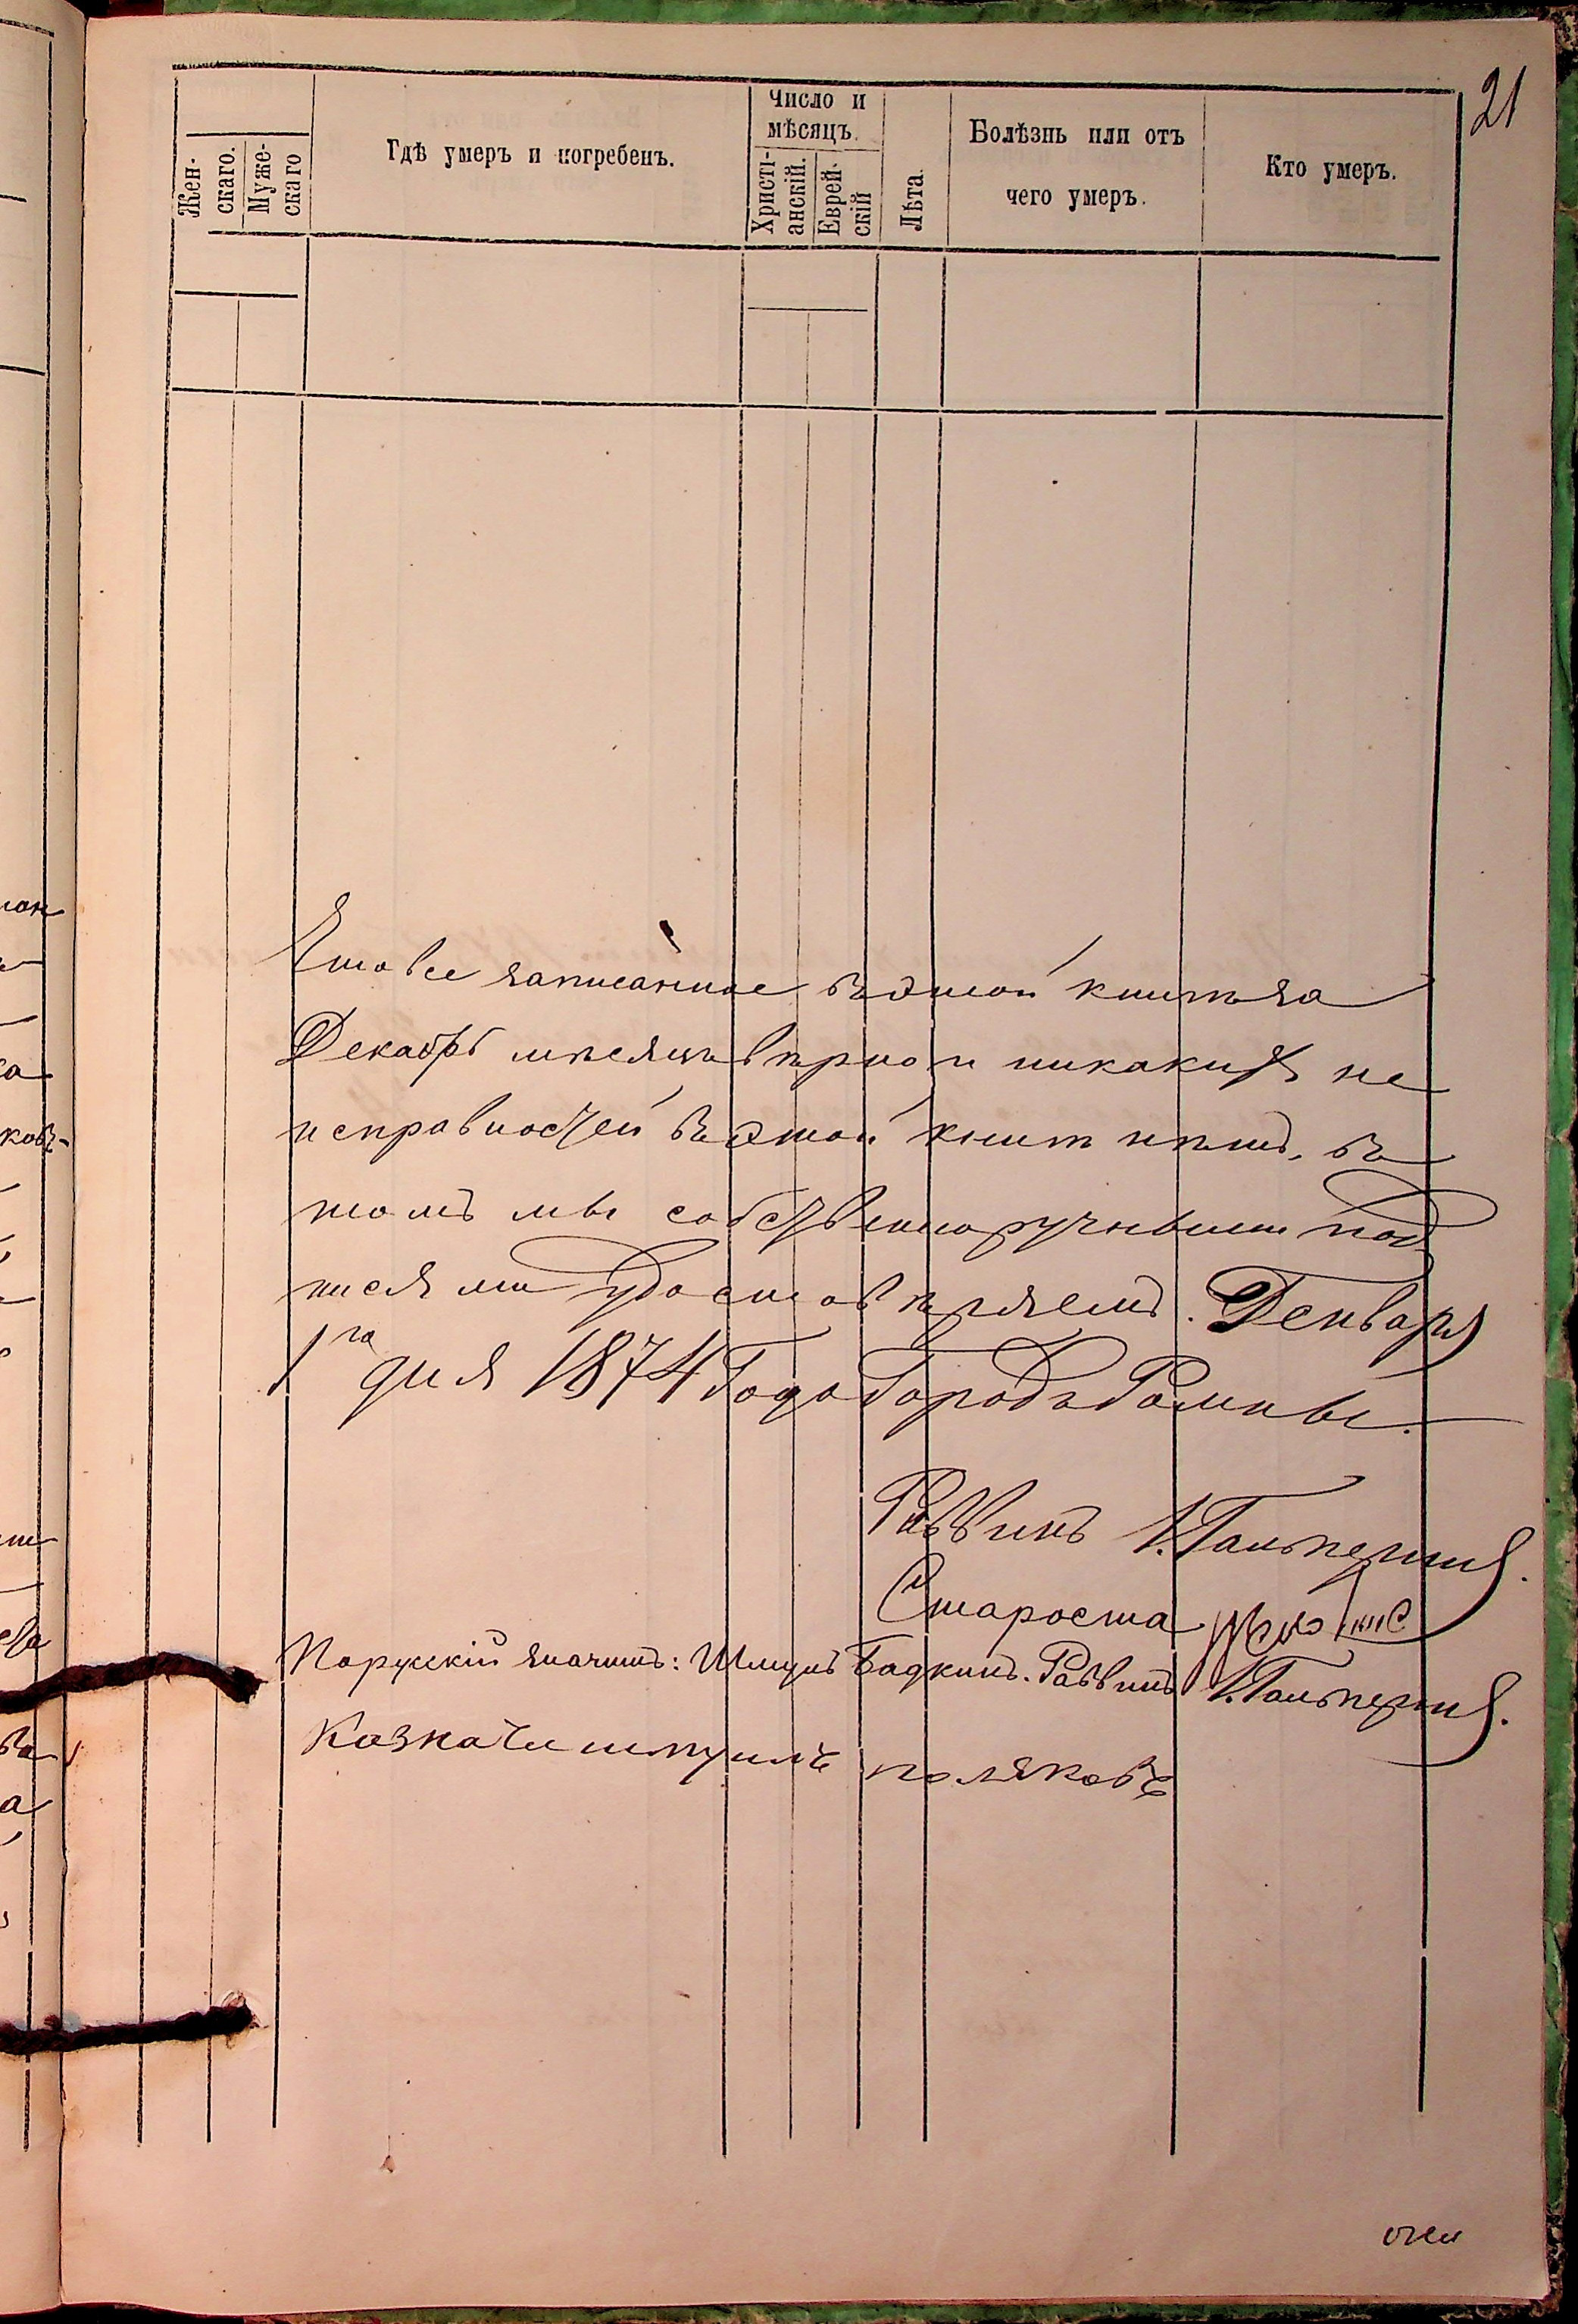 21
Жен-
скаго.
Муже-
скаго
Гдѣ умеръ и погребенъ.
Число и
мѣсяцъ.
Христі-
анскій.
Еврей-
скій
Лѣта.
Болѣзнь или отъ
чего умеръ.
Кто умеръ.
Что все записанное въ этой книгѣ за
Декабрь мѣсяцъ вѣрно и никакихъ не
исправностей въ этой книгѣ нѣтъ, въ
томъ мы собственноручными под
писями удостовѣряемъ. Генваря
1го дня 1874 Года Городъ Ромны.
Раввинъ І. Гальперинъ.
Староста
По русскій значитъ: Шмуль Бадкинъ. Раввинъ І. Гальперинъ.
Казначеи шмуилъ поляковъ